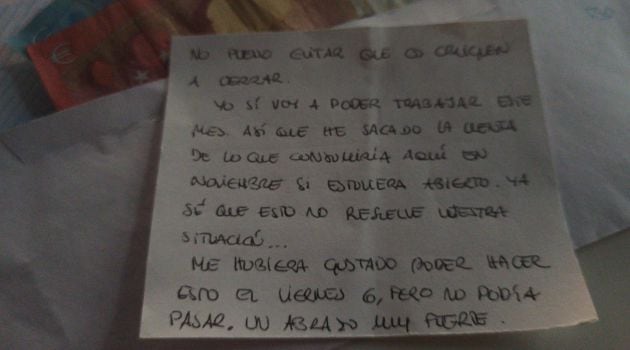 NO PUEDO EVITAR QUE OS OBLIGUEN
A CERRAR.
YO SÍ VOY A PODER TRABAJAR ESTE
MES. ASÍ QUE HE SACADO LA CUENTA
DE LO QUE CONSUMIRÍA AQUÍ EN
NOVIEMBRE SI ESTUVIERA ABIERTO. YA
SÉ QUE ESTO NO RESUELVE VUESTRA
SITUACIÓN...
ME HUBIERA GUSTADO PODER HACER
ESTO EL VIERNES 6, PERO NO PODÍA
PASAR. UN ABRAZO MUY FUERTE.